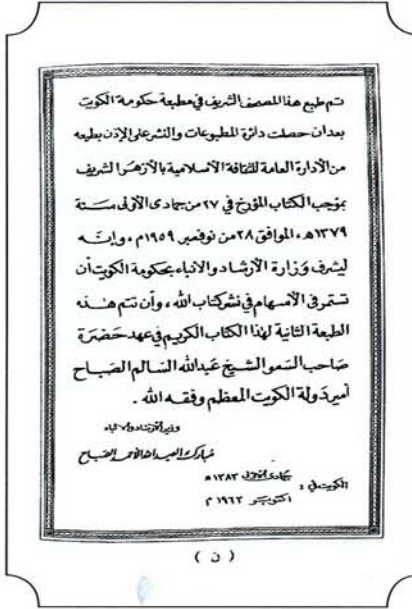 تم طبع هذا المصحف الشريف في مطبعة حكومة الكويت
بعد ان حصلت دائرة المطبوعات والنشر على الإذن بطبعه
من الأدارة العامة للثقافة الأسلامية بالأزهر الشريف
بموجب الكتاب المؤرخ في ٢٧ من جمادى الأولى سنة
١٣٧٩ه، الموافق ٢٨ من نوفمبر ١٩٥٩م، وإنه
ليشرف وزارة الأرشاد والانباء بحكومة الكويت أن
تستمر في الأسهام في نشر كتاب الله، وأن تتم هذه
الطبعة الثانية لهذا الكتاب الكريم في عهد حضرة
صاحب السمو الشيخ عبدالله السالم الصباح
أمير دولة الكويت المعظم وفقه الله.
وزير الارشاد والانباء
مبارك العبدالله الأحمد الصباح
الكويت في: جمادى الاولى ١٣٨٣ ه
اكتوبر ١٩٦٣ م
( ن )